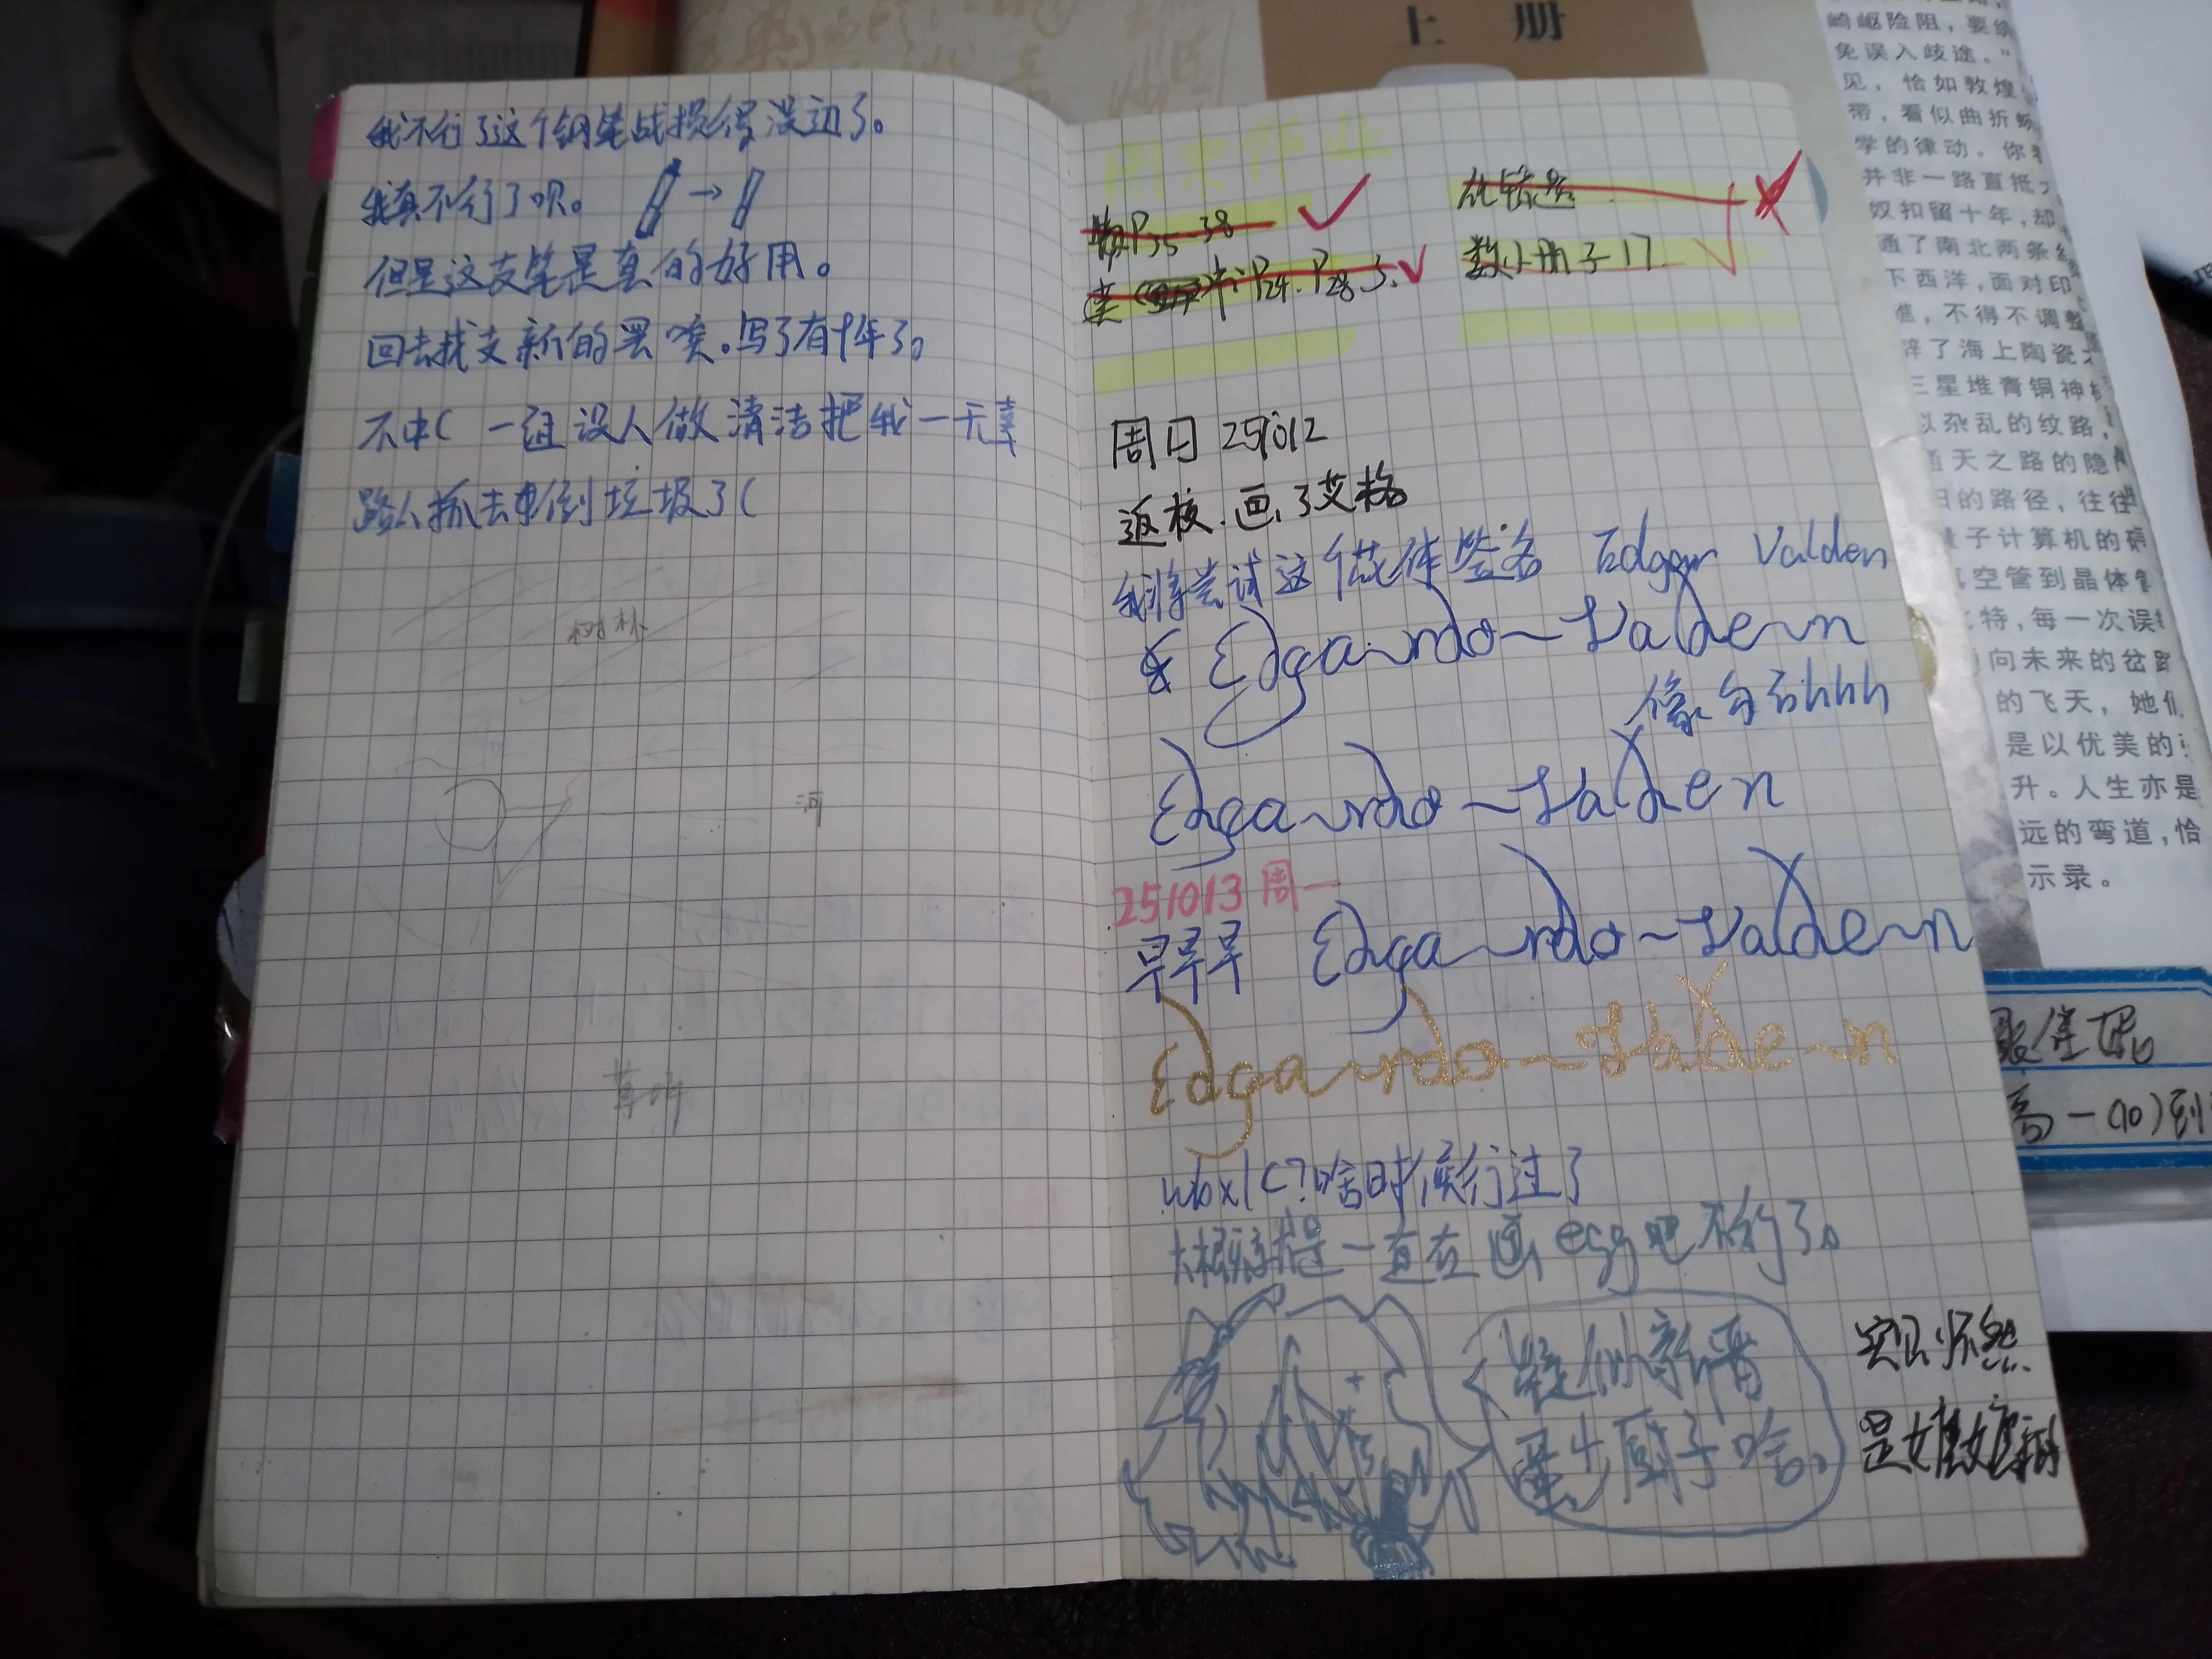 我不行了这个钢笔战损得没边了。
我真不行了呗。
但是这支笔是真的好用。
回去找支新的罢唉。写了有十年了。
不中( 一组没人做清洁把我一无辜
路人抓去倒垃圾了(
树林
河
周末作业
P35-38
P24. P28
化错题
数小册子17
周日 251012
返校.画了艾格
我将尝试这个花体签名 Edgar Valden
Edgardo~Valden
像勾石hhh
Edgardo~Valden
251013 周一
早早早 Edgardo~Valden
Edgardo~Valden
wbxl(?啥时候行过了
大概率是一直在画egg吧不行了。
疑似新晋
厨子啥。
上 册
崎岖险阻，要
免误入歧途。”
见，恰如敦煌
带，看似曲折
学的律动。你
并非一路直抵
奴扣留十年，却
通了南北两条
下西洋，面对印
，不得不调整
辟了海上陶瓷
三星堆青铜神
以杂乱的纹路，
通天之路的隐
的路径，往往
量子计算机的
真空管到晶体管
特，每一次误
向未来的岔路
的飞天，她们
是以优美的
升。人生亦是
远的弯道，恰
示录。
高一(10)